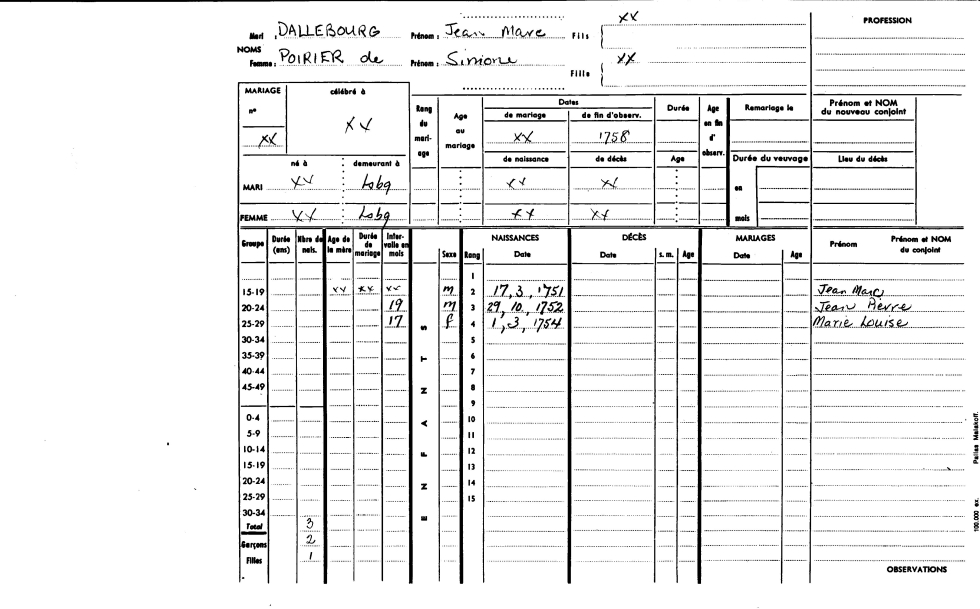 Mari : DALLEBOURG Prénom : Jean Marc Fils XX
NOMS
Femme : POIRIER de Prénom : Simone Fille XX
PROFESSION
MARIAGE célébré à
n° XX XX
Rang du mari-age
Age au mariage
Dates
de mariage de fin d'observ.
XX 1758
Durée
Age en fin d' observ.
Remariage le
Prénom et NOM du nouveau conjoint
né à demeurant à
de naissance de décès Age
Durée du veuvage
Lieu du décès
MARI XX Lsbg XX XX en
FEMME XX Lsbg XX XX mois
Groupe
Durée (ans)
Nbre de nais.
Age de la mère
Durée de mariage
Inter-valle en mois
ENFANTS
Sexe Rang
NAISSANCES Date
DÉCÈS Date s. m. Age
MARIAGES Date Age
Prénom
Prénom et NOM du conjoint
1
15-19 XX XX XX m 2 17, 3, 1751 Jean Marc
20-24 19 m 3 29, 10, 1752 Jean Pierre
25-29 17 f 4 1, 3, 1754 Marie Louise
30-34 5
35-39 6
40-44 7
45-49 8
9
0-4 10
5-9 11
10-14 12
15-19 13
20-24 14
25-29 15
30-34
Total 3
Garçons 2
Filles 1
OBSERVATIONS
100.000 ex. Pailles Malakoff.